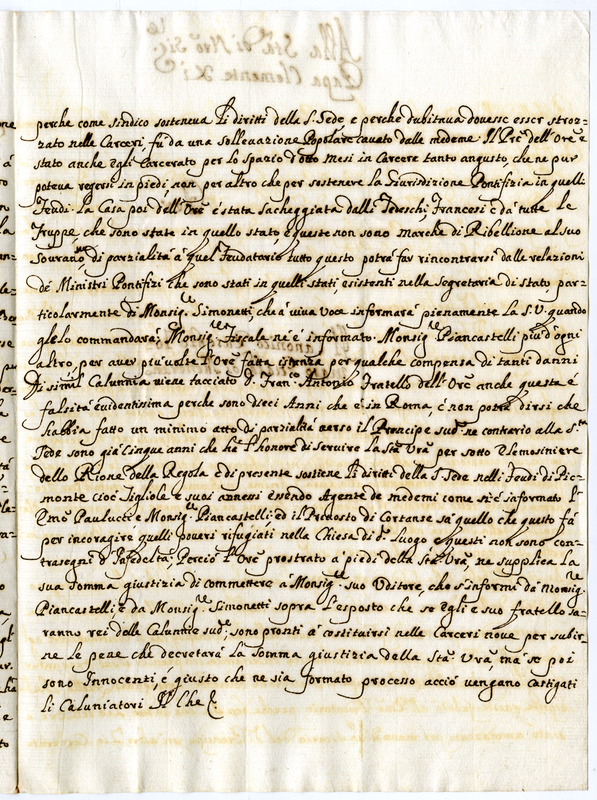 perche come sindico sosteneva li diritti della S. Sede, e perche dubitava dovesse esser stroz=
zato nelle Carceri, fù da una sollevazione Popolare cavato dalle medeme. Il Pre dell'Ore è
stato anche egli Carcerato per lo spazio d'otto mesi in Carcere tanto angusto, che ne pur
poteva regersi in piedi, non per altro che per sostenere la Giurisdizione Pontifizia in quelli
Feudi. La Casa poi dell'Ore è stata sacheggiata dalli Tedeschi, Francesi e dà tutte la
Truppe che sono state in quello stato, e queste non sono marche di Ribellione al suo
Sovrano, ne di parzialità à quel Feudatario, tutto questo potrà far rincontrarsi dalle relazioni
de Ministri Pontifizi che sono stati in quelli stati, esistenti nella Segretaria di stato par=
ticolarmente di Monsig.e Simonetti, che à viva voce informarà pienamente la S. V. quando
glelo commandarà, Monsig.re Fiscale ne è informato. Monsig.re Piancastelli più d'ogni
altro, per aver più volte l'Ore fatta istanza per qualche compensa di tanti danni
Di simil Calunnia viene tacciato D. Fran.co Antonio Fratello dell'Ore anche questa è
falsità evidentissima perche sono dieci Anni che è in Roma, e non potrà dirsi che
habbia fatto un minimo atto di parzialità verso il Prencipe sud.o ne contario alla S.ta
Sede sono già Cinque anni che hà l'honore di servire la Stà Vrà per sotto Elemosiniere
dello Rione della Regola e di presente sostiene li diritti della S. Sede nelli Feudi di Pie=
monte cioè Tigliole e suoi annessi essendo Agente de medemi come si è informato l'
Emo Paulucci e Monsig.e Piancastelli, ed il Prevosto di Cortanse sà quello che questo fà
per incoragire quelli poveri rifugiati nella Chiesa di d.o Luogo e questi non sono con=
trasegni d'Infedeltà; Perciò l'Ore prostrato à piedi della Stà Vrà, ne supplica la
sua somma giustizia di commettere à Monsig.re suo Uditore, che s'informi dà Monsig.re
Piancastelli, e dà Monsig.e Simonetti sopra l'esposto che se Egli e suo fratello sa=
ranno rei delle Calunnie sud.e, sono pronti à costituirsi nelle Carceri nove per subir=
ne le pene che decretarà la somma giustizia della Stà Vrà, mà se poi
sono Innocenti, è giusto che ne sia formato processo acciò vengano castigati
li Caluniatori Che
Alla Stà di Nro Sig.re
Papa Clemente XI